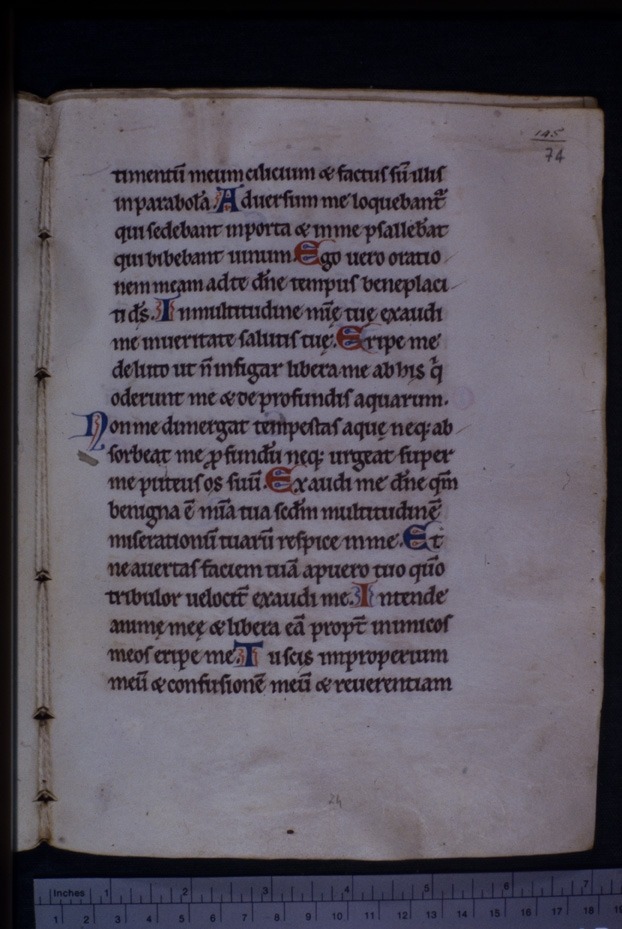 145
74
timentū meum cilicium & factus sū illis
in parabolā. Aduersum me loquebant᷑
qui sedebant in porta & in me psallebāt
qui bibebant uinum. Ego uero oratio
nem meam ad te dn̄e tempus beneplaci
ti ds̄. In multitudine mīe tuę exaudi
me in ueritate salutis tuę. Eripe me
de luto ut n̄ infigar libera me ab his q̄
oderunt me & de profundis aquarum.
Non me dimergat tempestas aquę neq; ab
sorbeat me ꝓfundū neq; urgeat super
me puteus os suū. Exaudi me dn̄e qm̄
benigna ē mīa tua scdm̄ multitudinē
miserationū tuarū respice in me. Et
ne auertas faciem tuā a puero tuo qūo
tribulor uelocit᷑ exaudi me. Intende
animę meę & libera eā propt᷑ inimicos
meos eripe me. Tu scis improperium
meū & confusionē meū & reuerentiam
24
Inches 1 2 3 4 5 6 7
1 2 3 4 5 6 7 8 9 10 11 12 13 14 15 16 17 18 19